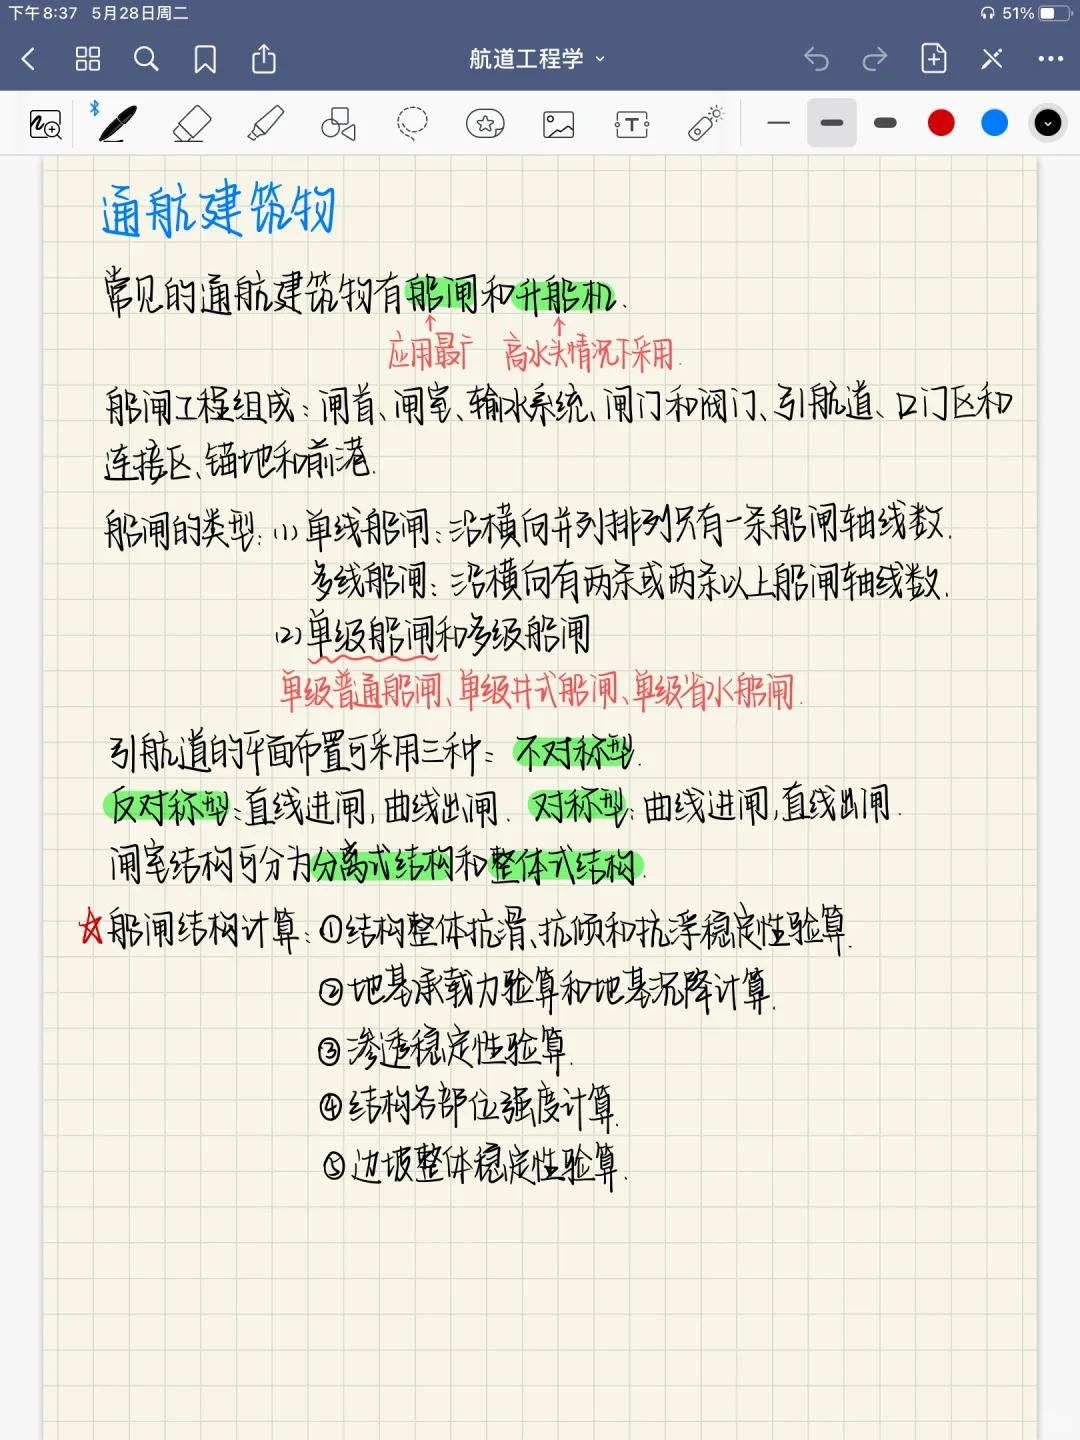 下午8:37 5月28日周二 51%
航道工程学
通航建筑物
常见的通航建筑物有船闸和升船机.
应用最广 高水头情况下采用.
船闸工程组成:闸首、闸室、输水系统、闸门和阀门、引航道、口门区和
连接区、锚地和前港.
船闸的类型:(1)单线船闸:沿横向并列排列只有一条船闸轴线数.
多线船闸:沿横向有两条或两条以上船闸轴线数.
(2)单级船闸和多级船闸
单级普通船闸、单级井式船闸、单级省水船闸.
引航道的平面布置可采用三种:不对称型.
反对称型:直线进闸,曲线出闸. 对称型:曲线进闸,直线出闸.
闸室结构可分为分离式结构和整体式结构.
☆船闸结构计算:①结构整体抗滑、抗倾和抗浮稳定性验算.
②地基承载力验算和地基沉降计算.
③渗透稳定性验算.
④结构各部位强度计算.
⑤边坡整体稳定性验算.